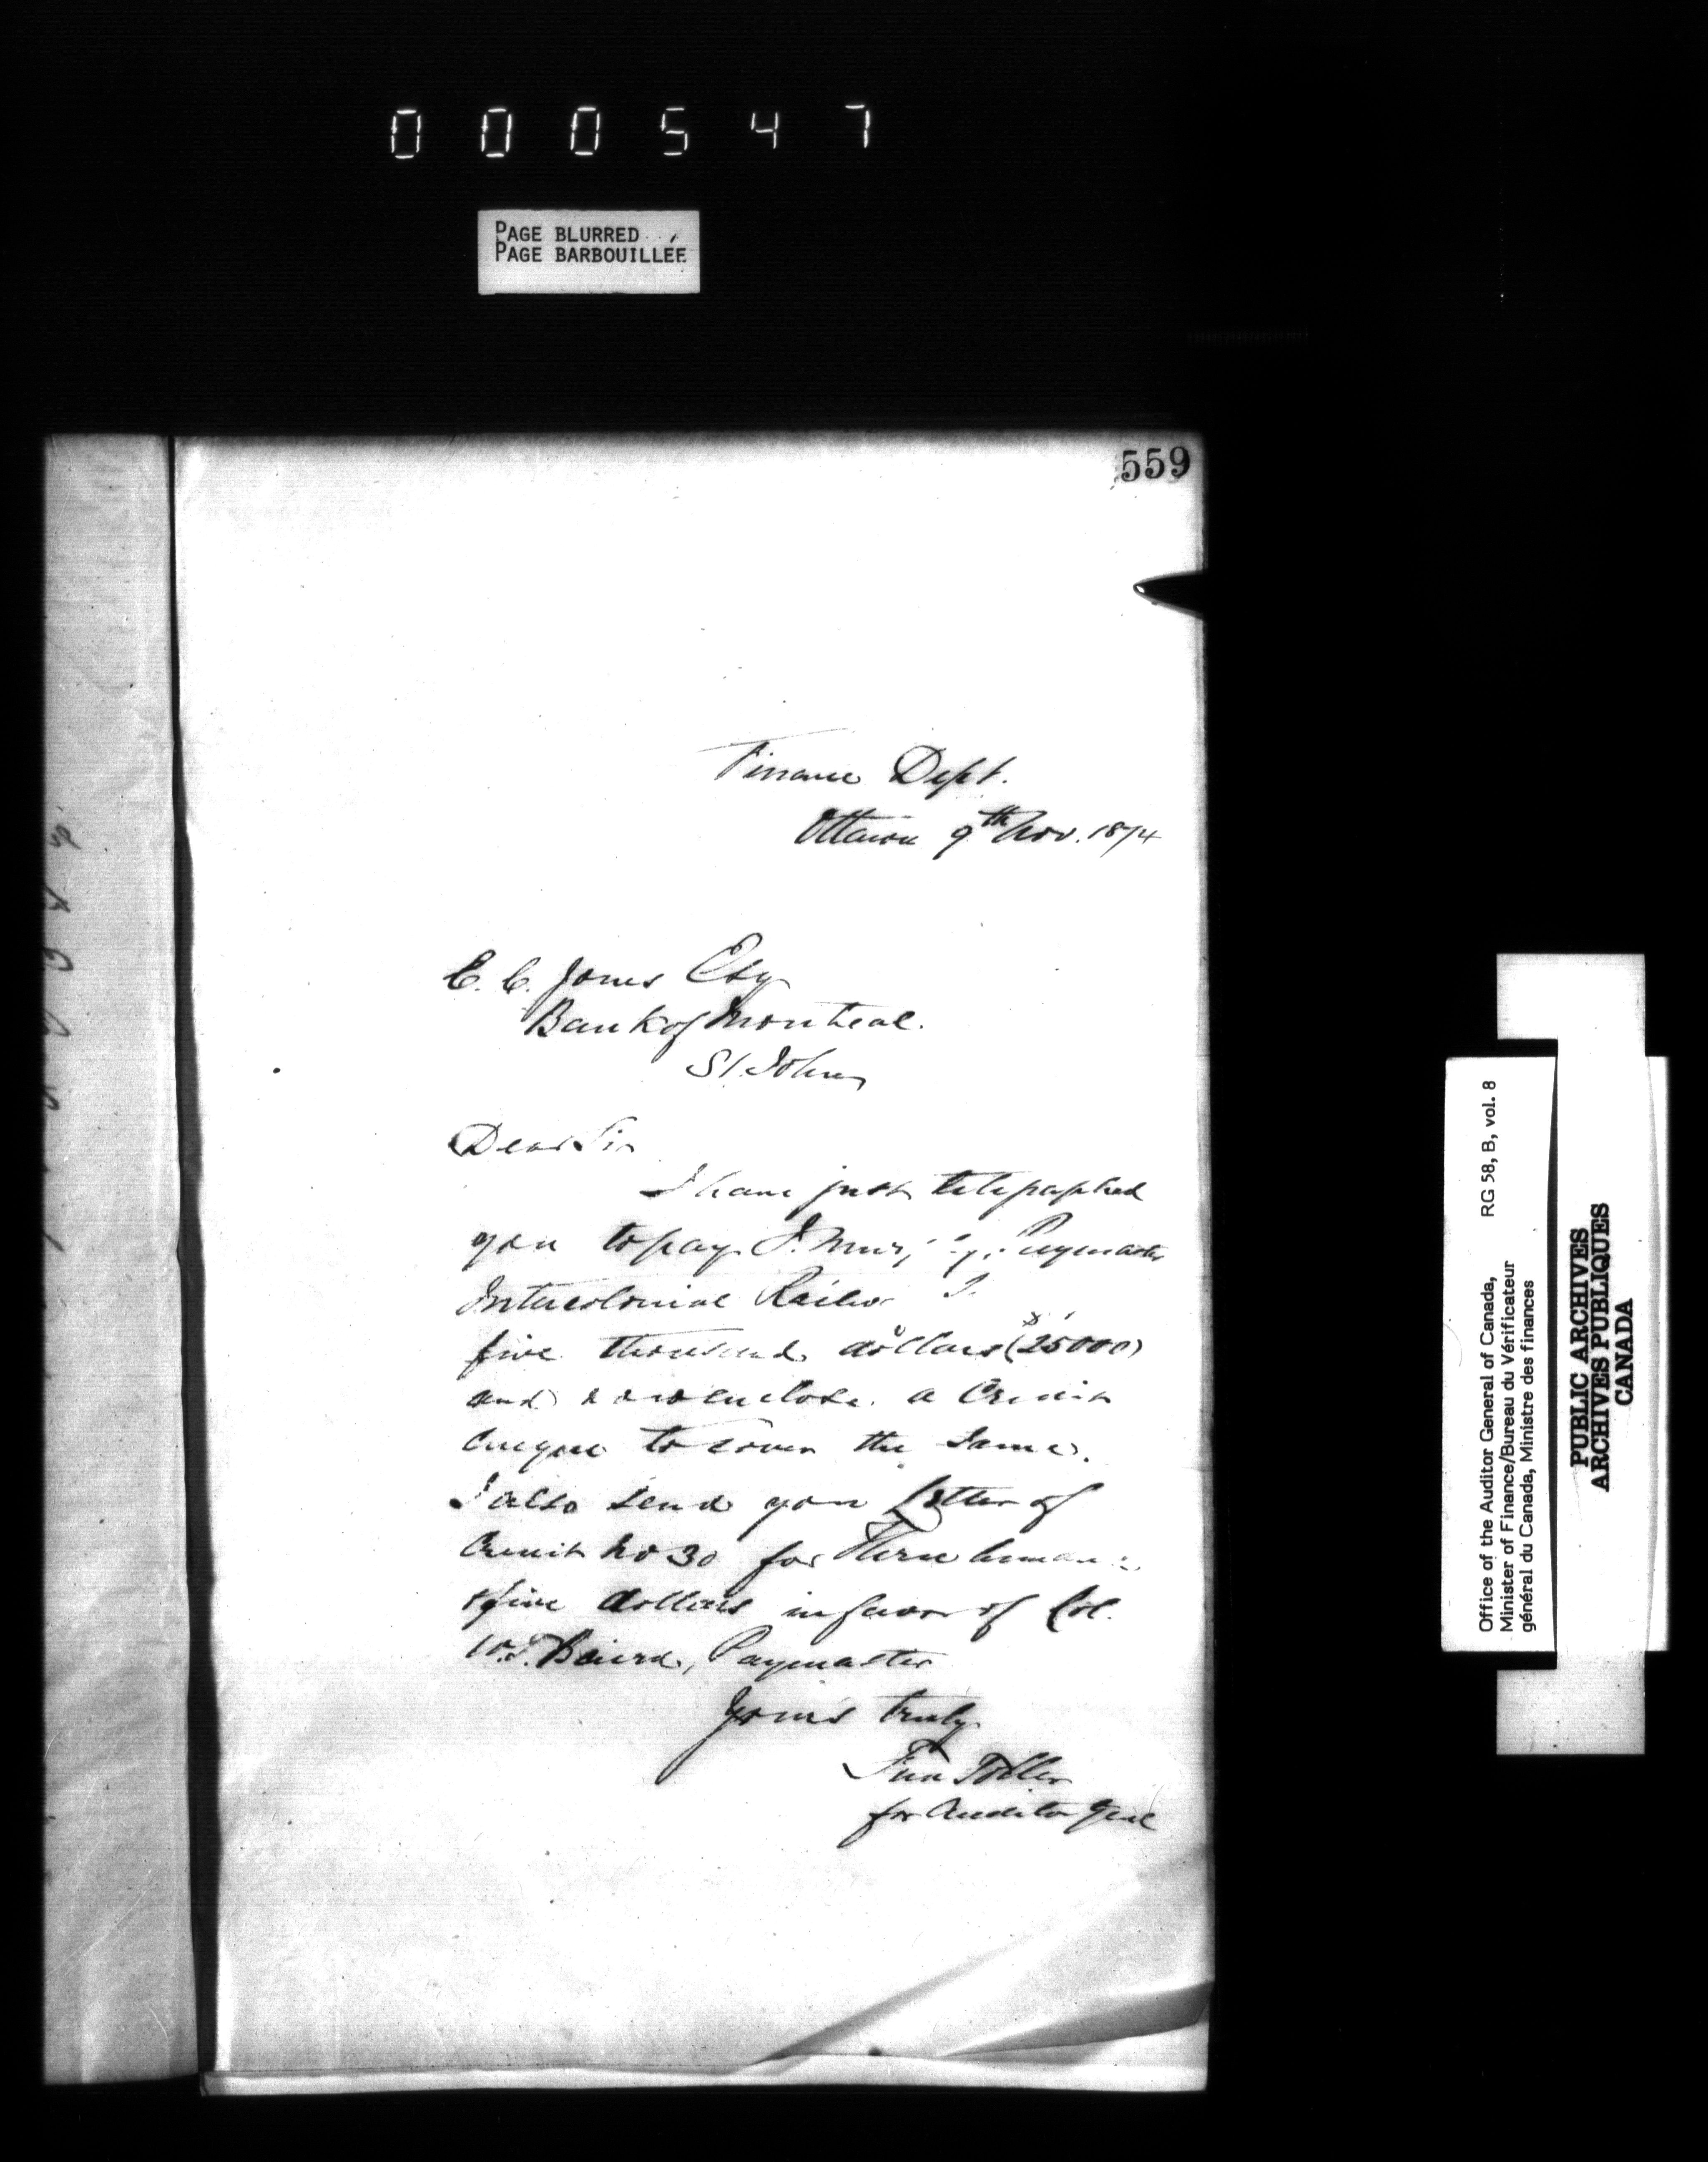 000547
PAGE BLURRED
PAGE BARBOUILLÉE
559
Finance Dept.
Ottawa 9th Nov. 1874
E. C. Jones Esq
Bank of Montreal.
St. John
Dear Sir
I have just telegraphed
you to pay Paymaster
Intercolonial
five thousand dollars ($25000)
and now enclose a Credit
Cheque to cover the same.
I also send you Letter of
Credit No 30 for Three
& five dollars in favor of Col.
W.T. Baird, Paymaster
Yours truly
for Auditor Genl
Office of the Auditor General of Canada, RG 58, B, vol. 8
Minister of Finance/Bureau du Vérificateur
général du Canada, Ministre des finances
PUBLIC ARCHIVES
ARCHIVES PUBLIQUES
CANADA